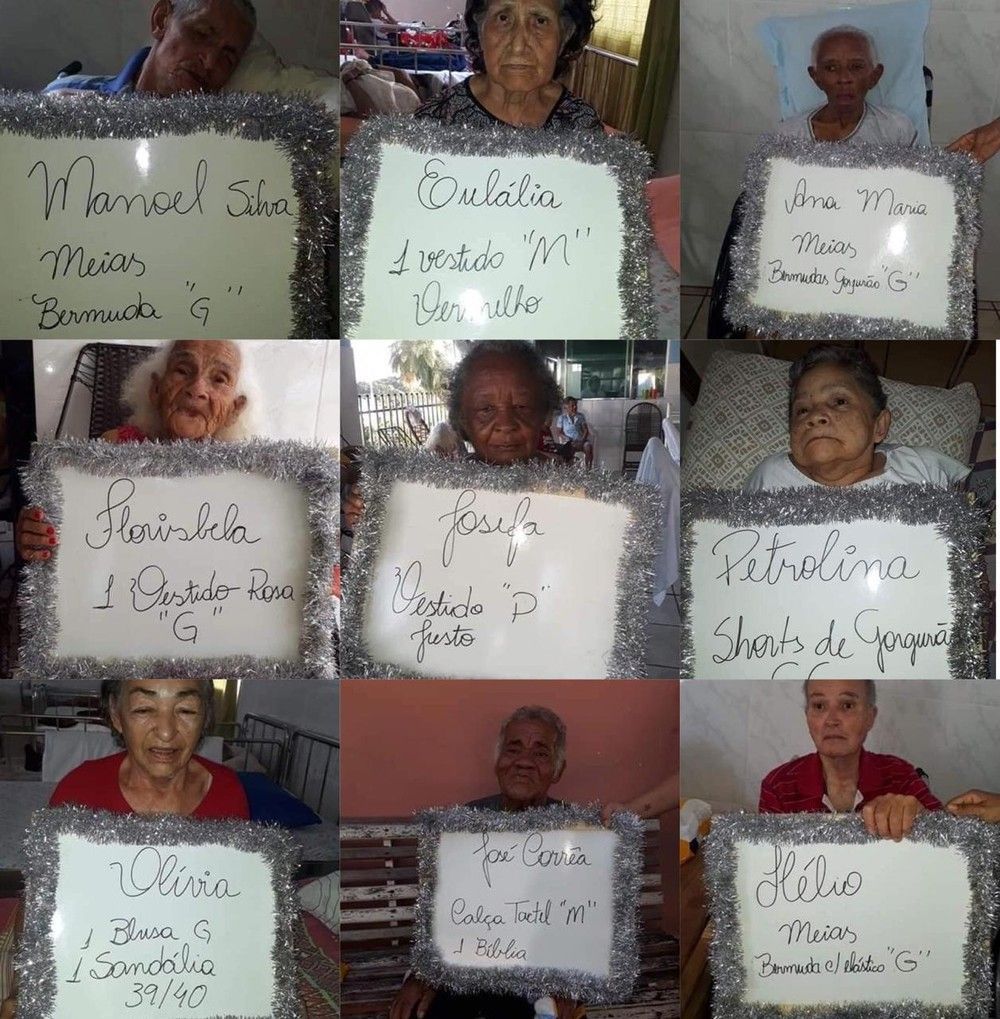 Manoel Silva
Meias
Bermuda "G"
Eulália
1 vestido "M"
Vermelho
Ana Maria
Meias
Bermudas Gorgurão "G"
Florisbela
1 Vestido Rosa
"G"
Josefa
Vestido "P"
Justo
Petrolina
Shorts de Gorgurão
Olívia
1 Blusa G
1 Sandália
39/40
José Corrêa
Calça Tactel "M"
1 Bíblia
Hélio
Meias
Bermuda c/ elástico "G"